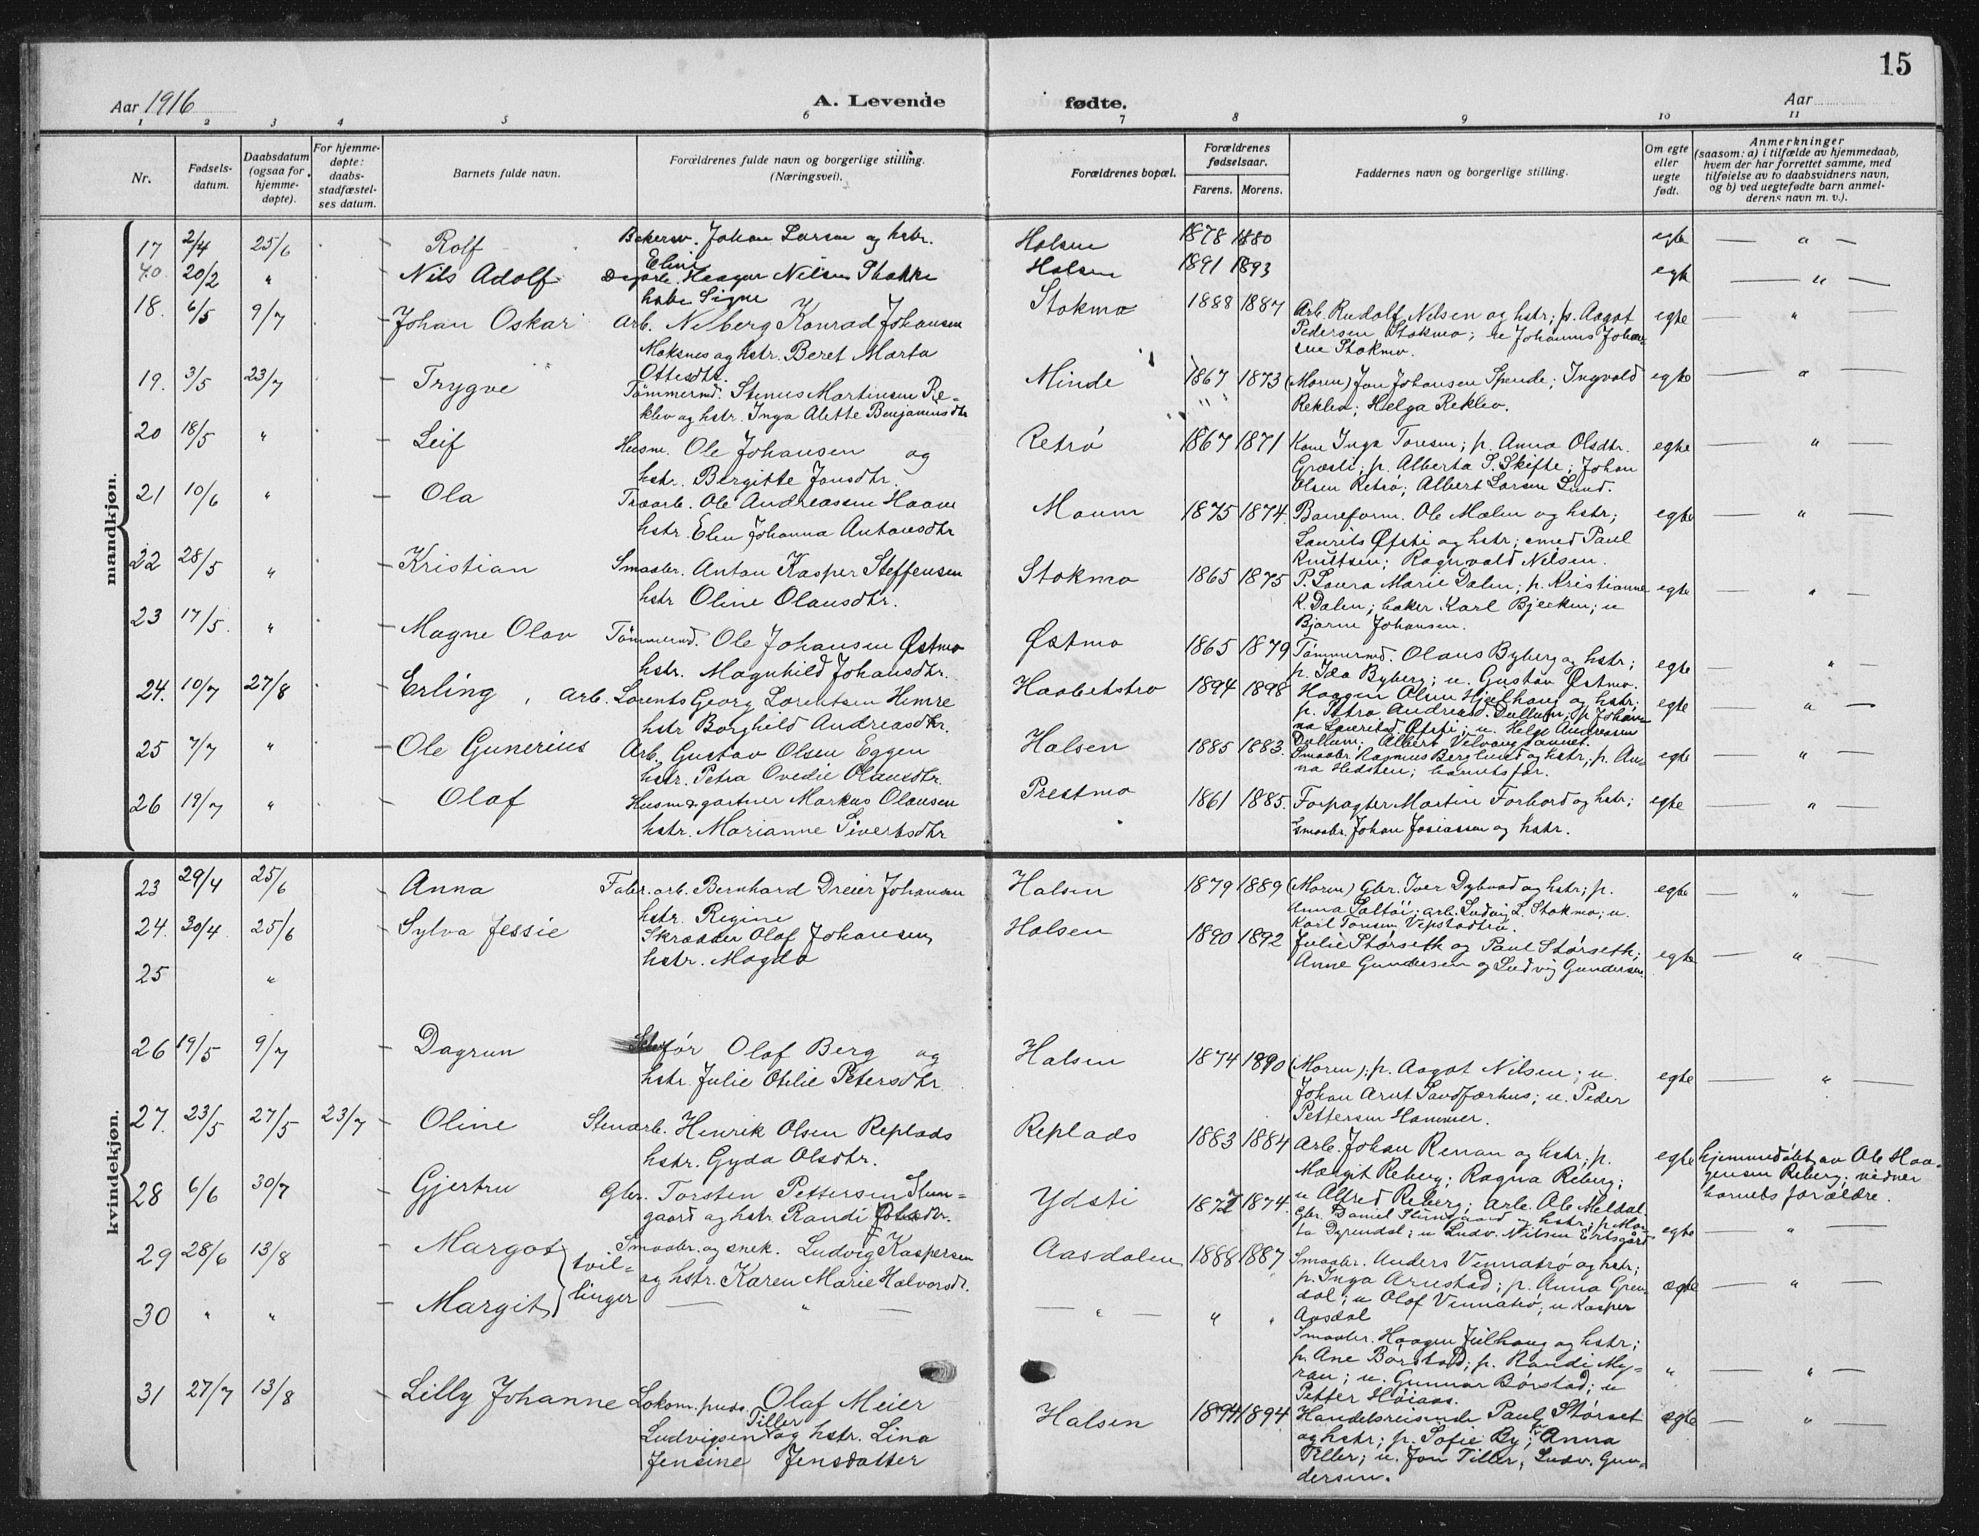 15
Aar 1916
A. Levende
fødte.
Aar
1 2 3 4 5 6 7 8 9 10 11
Nr.
Fødsels-
datum.
Daabsdatum
(ogsaa for
hjemme-
døpte).
For hjemme-
døpte:
daabs-
stadfæstel-
ses datum.
Barnets fulde navn.
Forældrenes fulde navn og borgerlige stilling.
(Næringsvei).
Forældrenes bopæl.
Forældrenes
fødselsaar.
Farens. Morens.
Faddernes navn og borgerlige stilling.
Om egte
eller
uegte
født.
Anmerkninger
(saasom: a) i tilfælde av hjemmedaab,
hvem der har forrettet samme, med
tilføielse av to daabsvidners navn,
og b) ved uegtefødte barn anmel-
derens navn m. v.).
mandkjøn.
17 2/4 25/6 Rolf Johan Larsen og hstr. Halsen 1878 1880 egte — " —
Elini
40. 20/2 " Nils Adolf Haagen Nilsen Stokke Halsen 1891 1893 egte — " —
hstr Signe
18. 6/5 9/7 Johan Oskar Arb. Nilberg Konrad Johansen Stokmo 1888 1887 Arb. Rudolf Nilsen og hstr; p. Aagot egte — " —
Moksnes og hstr. Beret Marta Pedersen Stokmo; u Johannes Johan-
Ottesdtr. sen Stokmo.
19. 3/5 23/7 Trygve Tømmermd. Stenus Martinsen Re- Minde 1867 1873 (Moren) Jon Johansen Spende; Ingvald egte — " —
klev og hstr. Inga Alette Benjaminsdtr Reklev; Helga Reklev.
20 18/5 " Leif Husm. Ole Johansen og Retrø 1867 1871 Kone Inga Tonsen; p. Anna Olsdtr. egte — " —
hstr. Bergitte Jonsdtr. Græsli; p. Alberta S. Skifte; Johan
Olsen Retrø; Albert Larsen Lund.
21 10/6 " Ola Træarb. Ole Andreassen Haave Moum 1875 1874 Baneform. Ole Mælen og hstr; egte — " —
hstr. Elen Johanna Antonsdtr Laurits Øfsti og hstr; smed Paul
Knutsen; Ragnvald Nilsen.
22 28/5 " Kristian Smaabr. Anton Kasper Steffensen Stokmo 1865 1875 P. Laura Marie Dalen; p. Kristianne egte — " —
hstr Oline Olausdtr. K. Dalen; baker Karl Bjerken; u
Bjarne Johansen.
23 17/5 " Magne Olav Tømmermd. Ole Johansen Østmo Østmo 1865 1879 Tømmermd. Olaus Byberg og hstr; egte — " —
hstr. Magnhild Johansdtr. p. Ida Byberg; u. Gustav Østmo.
24. 10/7 27/8 Erling, Arb. Lorents Georg Lorentsen Himre Haabetstrø 1894 1898 Haagen Olsen Hjelhaug og hstr; egte — " —
hstr Borghild Andreasdtr. p. Petra Andreasd. Dullum; p. Johan-
na Lauritsd. Øfsti; u. Helge Andreasen
Dullum. Albert
25 7/7 " Ole Gunerius Arb. Gustav Olsen Eggen Halsen 1885 1883. Smaabr. Rasmus Berglund og hstr; p. An- egte — " —
hstr. Petra Ovedie Olausdtr. na Hedsten; barnets far.
26 19/7 " Olaf Husm & gartner Markus Olausen Prestmo 1861 1885. Forpagter Martin Forbord og hstr; egte — " —
hstr. Marianne Sivertsdtr Smaabr. Johan Josiassen og hstr.
kvindekjøn.
23 29/4 25/6 Anna Fabr. arb. Bernhard Dreier Johansen Halsen 1879 1889 (Moren) Gbr. Iver Dybvad og hstr; p. egte — " —
hstr. Regine Anna Saltøi; arb. Ludvig L. Stokmo; u.
Karl Tonsen
24. 30/4 25/6 Sylva Jessie Skrædder Olaf Johansen, Halsen 1890 1892 Julie Størseth og Paul Størseth; egte — " —
hstr. Magda Anne Gundersen og Ludvig Gundersen
25 "
26 19/5 9/7 Dagrun før Olaf Berg og Halsen 1874 1890 (Moren); p. Aagot Nilsen; u. egte — " —
hstr. Julie Otilie Petersdtr. Johan Arnt Sandfærhus; u. Peder
Pettersen Hammer.
27. 23/5 27/5 23/7 Oline Stenarb. Henrik Olsen Replads Replads 1883 1884 Arb. Johan Renan og hstr; p. egte hjemmedøbt av Ole Haa-
hstr. Gyda Olsdtr. Margit Reberg; Ragna Reberg; gensen Reberg; vidner
u Alfred Reberg; Arb. Ole Meldal. barnets forældre.
28 6/6 30/7 Gjertru Gbr. Torsten Pettersen Slun- Ydsti 1872 1874. Gbr. Daniel Slungaard og hstr; p. Mar- egte — " —
gaard og hstr Randi ta Dyrendal; u Ludv. Nilsen
29 28/6 13/8 Margot } tvil- Smaabr. og snek. Ludvig Kaspersen Aasdalen 1888 1887 Smaabr. Anders Vennatrø og hstr; egte — " —
linger og hstr. Karen Marie Halvorsdt. p. Inga Arnstad; p. Anna Gren-
dal; u Olaf Vennatrø; u Kasper
Aasdal
30 " " Margit — " — — " — " " Smaabr. Haagen Julhaug og hstr; " — " —
p. Ane Børstad; p. Randi My-
ran; u. Gunnar Børstad; u
Petter Høiaas.
31 27/7 13/8 Lilly Johanne Lokom. puds. Olaf Meier Halsen 1894 1894 Handelsreisende Paul Størset egte — " —
Ludvigsen Tiller og hstr. Lina og hstr; p. Sofie By; Anna
Jensine Jensdatter Tiller; u. Jon Tiller, Ludv. Gun-
dersen.